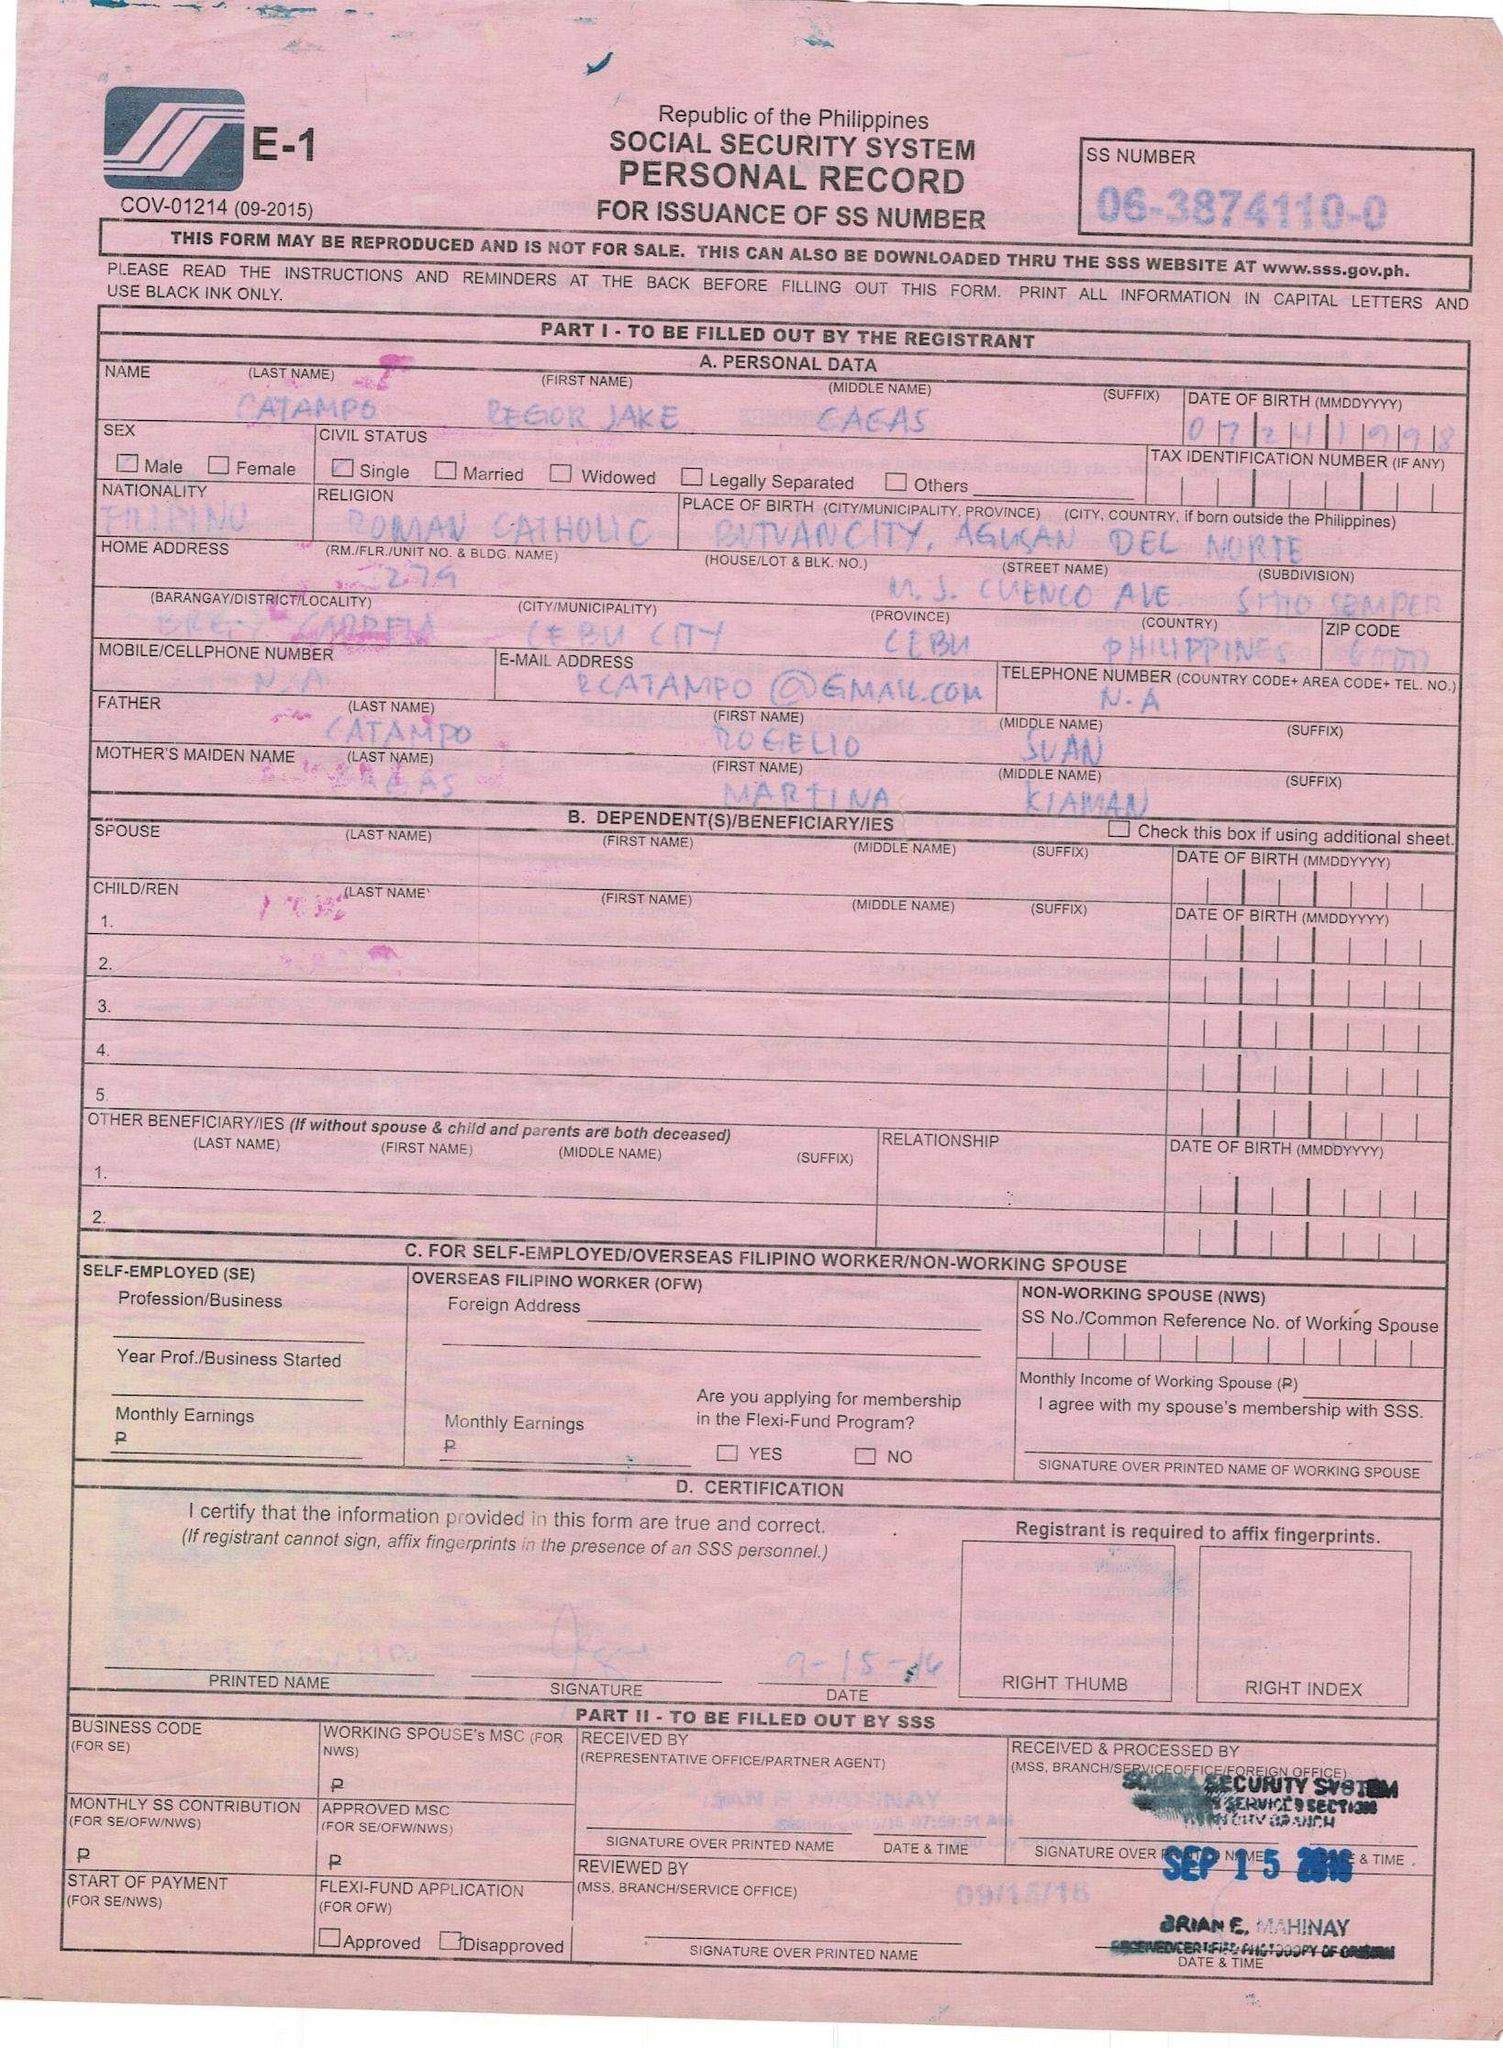 E-1
COV-01214 (09-2015)
Republic of the Philippines
SOCIAL SECURITY SYSTEM
PERSONAL RECORD
FOR ISSUANCE OF SS NUMBER
SS NUMBER
06-3874110-0
THIS FORM MAY BE REPRODUCED AND IS NOT FOR SALE. THIS CAN ALSO BE DOWNLOADED THRU THE SSS WEBSITE AT www.sss.gov.ph.
PLEASE READ THE INSTRUCTIONS AND REMINDERS AT THE BACK BEFORE FILLING OUT THIS FORM. PRINT ALL INFORMATION IN CAPITAL LETTERS AND
USE BLACK INK ONLY.
PART I - TO BE FILLED OUT BY THE REGISTRANT
A. PERSONAL DATA
NAME (LAST NAME) (FIRST NAME) (MIDDLE NAME) (SUFFIX) DATE OF BIRTH (MMDDYYYY)
CATAMPO REGOR JAKE CAGAS 07241998
SEX CIVIL STATUS TAX IDENTIFICATION NUMBER (IF ANY)
Male Female Single Married Widowed Legally Separated Others
NATIONALITY RELIGION PLACE OF BIRTH (CITY/MUNICIPALITY, PROVINCE) (CITY, COUNTRY, if born outside the Philippines)
FILIPINO ROMAN CATHOLIC BUTUAN CITY, AGUSAN DEL NORTE
HOME ADDRESS (RM./FLR./UNIT NO. & BLDG. NAME) (HOUSE/LOT & BLK. NO.) (STREET NAME) (SUBDIVISION)
279 M. J. CUENCO AVE SITIO SEMPER
(BARANGAY/DISTRICT/LOCALITY) (CITY/MUNICIPALITY) (PROVINCE) (COUNTRY) ZIP CODE
CEBU CITY CEBU PHILIPPINES
MOBILE/CELLPHONE NUMBER E-MAIL ADDRESS TELEPHONE NUMBER (COUNTRY CODE+ AREA CODE+ TEL. NO.)
N.A RCATAMPO@GMAIL.COM N.A
FATHER (LAST NAME) (FIRST NAME) (MIDDLE NAME) (SUFFIX)
CATAMPO ROGELIO SUAN
MOTHER'S MAIDEN NAME (LAST NAME) (FIRST NAME) (MIDDLE NAME) (SUFFIX)
CAGAS MARTINA KIAMAN
B. DEPENDENT(S)/BENEFICIARY/IES Check this box if using additional sheet.
SPOUSE (LAST NAME) (FIRST NAME) (MIDDLE NAME) (SUFFIX) DATE OF BIRTH (MMDDYYYY)
CHILD/REN (LAST NAME) (FIRST NAME) (MIDDLE NAME) (SUFFIX) DATE OF BIRTH (MMDDYYYY)
1.
2.
3.
4.
5.
OTHER BENEFICIARY/IES (If without spouse & child and parents are both deceased) RELATIONSHIP DATE OF BIRTH (MMDDYYYY)
(LAST NAME) (FIRST NAME) (MIDDLE NAME) (SUFFIX)
1.
2.
C. FOR SELF-EMPLOYED/OVERSEAS FILIPINO WORKER/NON-WORKING SPOUSE
SELF-EMPLOYED (SE)
Profession/Business
Year Prof./Business Started
Monthly Earnings
₱
OVERSEAS FILIPINO WORKER (OFW)
Foreign Address
Monthly Earnings
₱
Are you applying for membership
in the Flexi-Fund Program?
YES NO
NON-WORKING SPOUSE (NWS)
SS No./Common Reference No. of Working Spouse
Monthly Income of Working Spouse (₱)
I agree with my spouse's membership with SSS.
SIGNATURE OVER PRINTED NAME OF WORKING SPOUSE
D. CERTIFICATION
I certify that the information provided in this form are true and correct.
(If registrant cannot sign, affix fingerprints in the presence of an SSS personnel.)
Registrant is required to affix fingerprints.
9-15-16
PRINTED NAME SIGNATURE DATE RIGHT THUMB RIGHT INDEX
PART II - TO BE FILLED OUT BY SSS
BUSINESS CODE
(FOR SE)
WORKING SPOUSE's MSC (FOR
NWS)
₱
MONTHLY SS CONTRIBUTION
(FOR SE/OFW/NWS)
₱
APPROVED MSC
(FOR SE/OFW/NWS)
₱
START OF PAYMENT
(FOR SE/NWS)
FLEXI-FUND APPLICATION
(FOR OFW)
Approved Disapproved
RECEIVED BY
(REPRESENTATIVE OFFICE/PARTNER AGENT)
SIGNATURE OVER PRINTED NAME DATE & TIME
REVIEWED BY
(MSS, BRANCH/SERVICE OFFICE)
09/15/16
SIGNATURE OVER PRINTED NAME DATE & TIME
RECEIVED & PROCESSED BY
(MSS, BRANCH/SERVICE OFFICE/FOREIGN OFFICE)
SOCIAL SECURITY SYSTEM
SERVICES SECTION
BRANCH
SIGNATURE OVER PRINTED NAME DATE & TIME
SEP 15 2016
BRIAN E. MAHINAY
RECEIVED/CERTIFIED PHOTOCOPY OF ORIGINAL